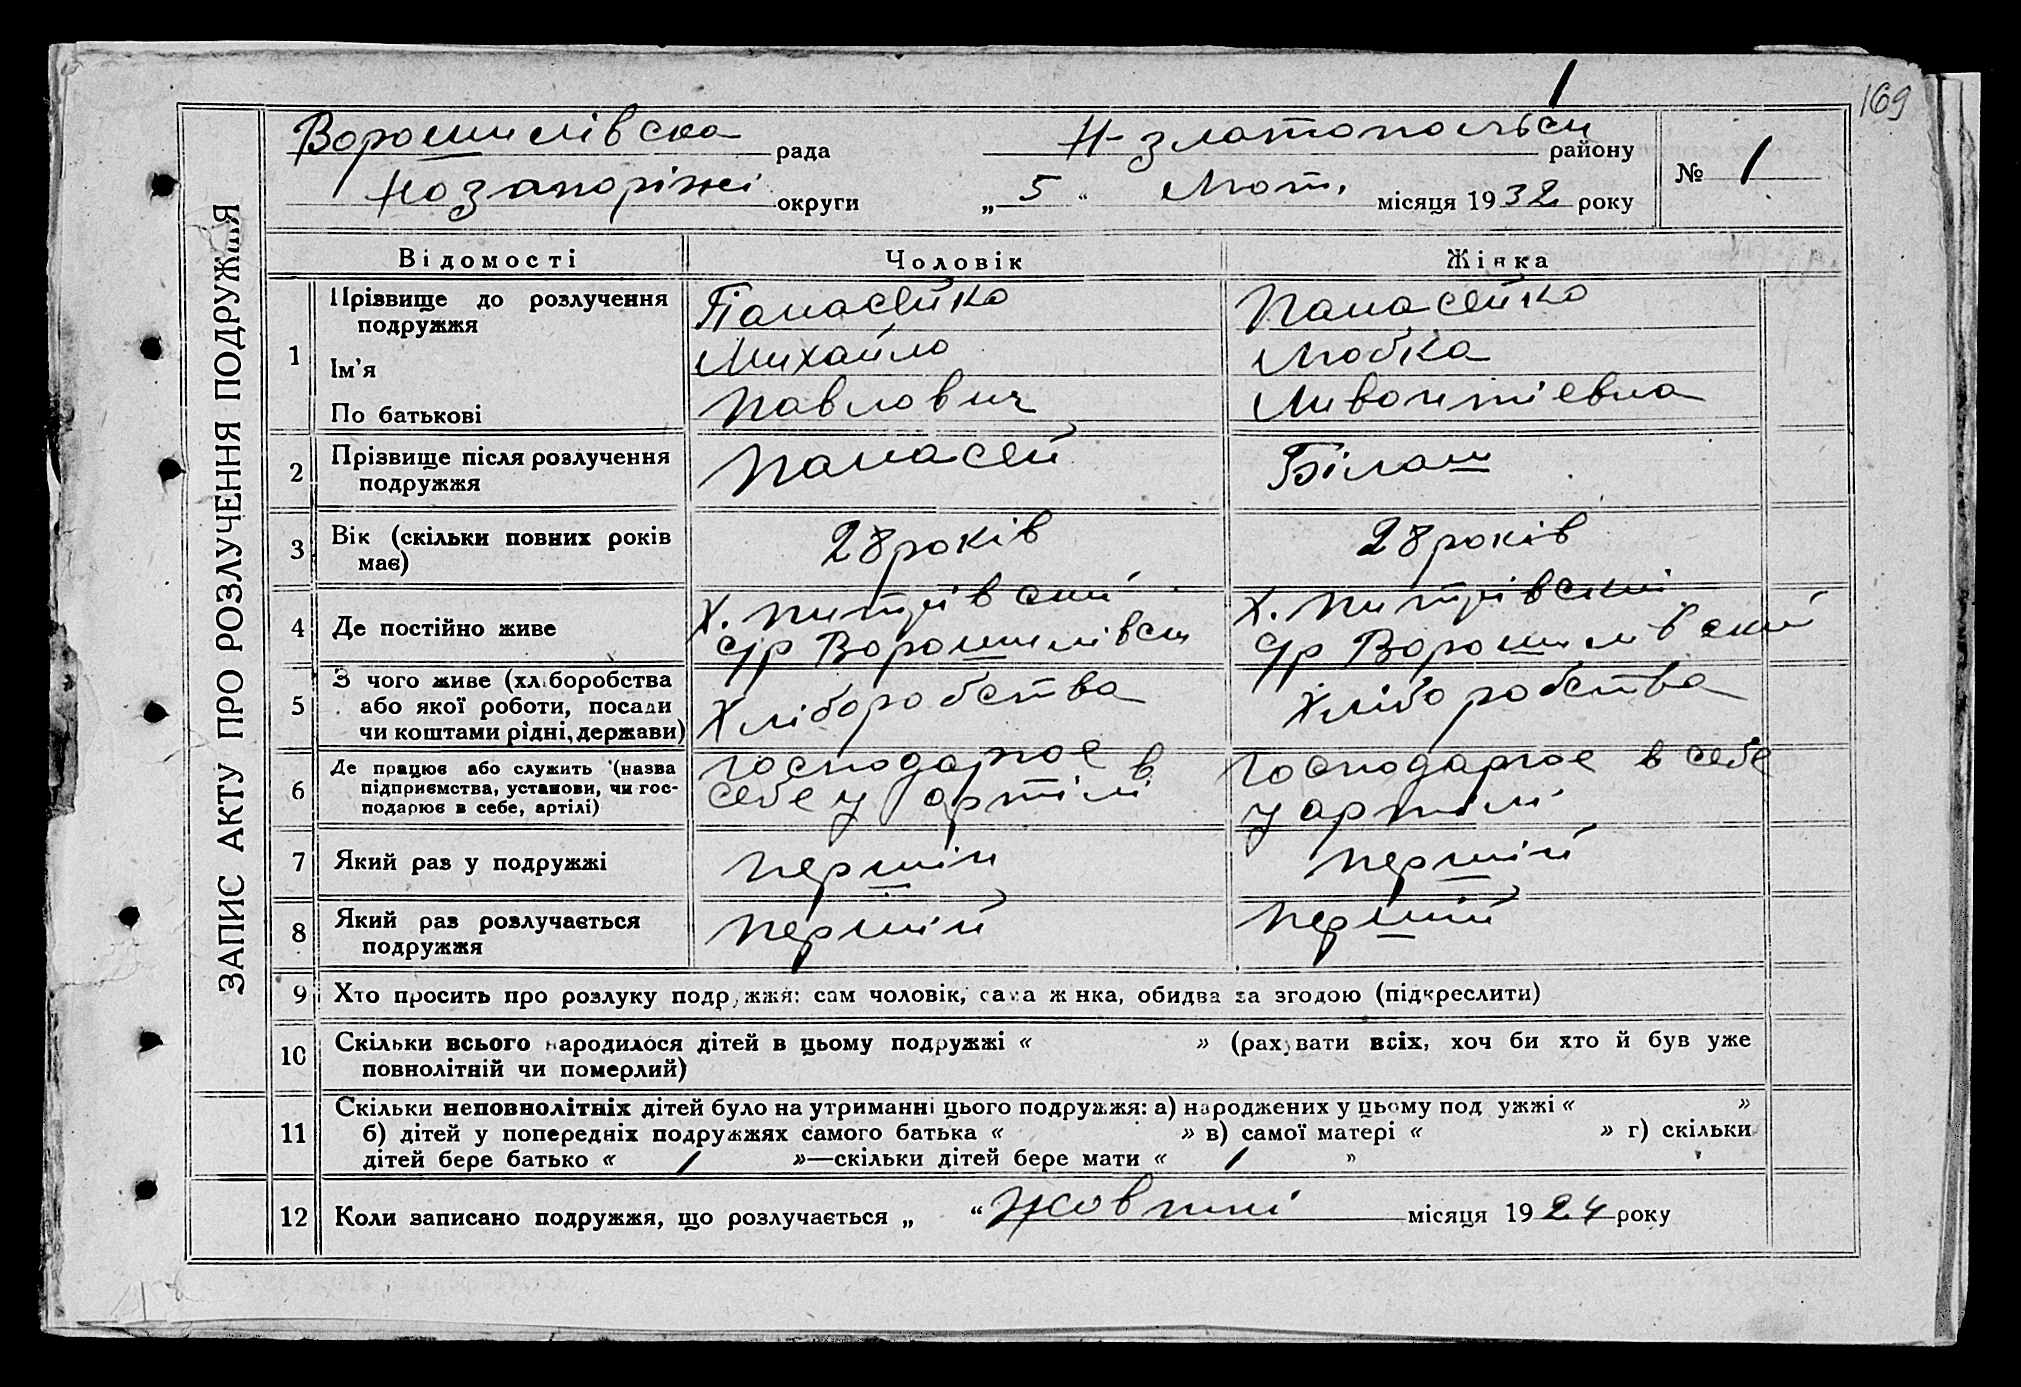 1
169
ЗАПИС АКТУ ПРО РОЗЛУЧЕННЯ ПОДРУЖЖЯ
Ворошилівска рада Н-златопольск району № 1
Н о запоріжі округи „ 5 “ Лют. місяця 1932 року
Відомості Чоловік Жінка
1 Прізвище до розлучення подружжя Панасейко Панасейко
Ім'я Михайло Любка
По батькові Павлович Ливонтіевна
2 Прізвище після розлучення
подружжя Панасей Білаш
3 Вік (скільки повних років
має) 28 років 28 років
4 Де постійно живе Х. Питрівский Х. Питрівский
с/р Ворошилівск с/р Ворошилівский
5 З чого живе (хліборобства
або якої роботи, посади
чи коштами рідні, держави) Хліборобства Хліборобства
6 Де працює або служить (назва
підприємства, установи, чи гос-
подарює в себе, артілі) господарює в себе у артілі господарює в себе у артілі
7 Який раз у подружжі першій першій
8 Який раз розлучається
подружжя першій першій
9 Хто просить про розлуку подружжя: сам чоловік, сама жінка, обидва за згодою (підкреслити)
10 Скільки всього народилося дітей в цьому подружжі « » (рахувати всіх, хоч би хто й був уже
повнолітній чи померлий)
11 Скільки неповнолітніх дітей було на утриманні цього подружжя: а) народжених у цьому подружжі « »
б) дітей у попередніх подружжях самого батька « » в) самої матері « » г) скільки
дітей бере батько « 1 »—скільки дітей бере мати « 1 »
12 Коли записано подружжя, що розлучається „ “ Жовтні місяця 1924 року